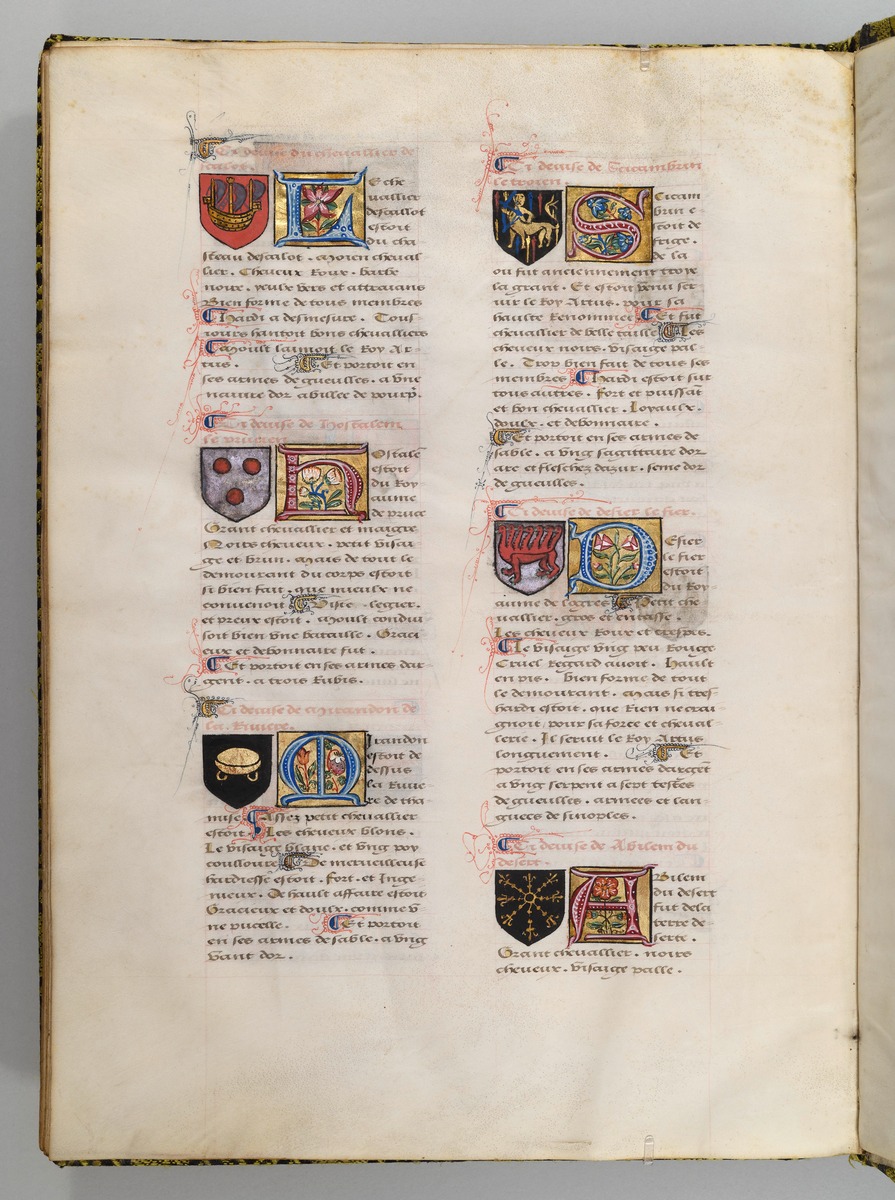 Ci devise du chevallier de
scalot.
Le che
vallier
descallot
estoit
du cha
steau descalot. Moien cheval
lier. Cheveux Roux. barbe
noire. yeulx vers et attraians
Bien forme de tous membres
Hardi a desmesure. Tous
iours hantoit bons chevalliers
Moult laimoit le Roy Ar
tus. Et portoit en
ses armes de gueulles. a vne
nauire dor abillee de pourp.
Ci devise de Hostalem
le prucien
Ostale
estoit
du Roy
aume
de pruce
Grant chevallier et maigre
Noirs cheveux. petit visai
ge et brun. Mais de tout le
demourant du corps estoit
si bien fait. que mieulx ne
convenoit. Viste. legier.
et preux estoit. Moult condui
soit bien vne bataille. Graci
eux et debonnaire fut.
Et portoit en ses armes dar
gent. a trois Rubis.
Ci devise de Mirandon de
la Riviere.
Irandon
estoit de
dessus
la Rivie
re de tha
mise. Assez petit chevallier
estoit. Les cheveux blons.
Le visaige blanc. et vng poy
coulloure. De merveilleuse
hardiesse estoit. Fort. et Inge
nieux. De hault affaire estoit
Gracieux et doulx. comme v
ne pucelle. Et portoit
en ses armes de sable. a vng
vant dor.
Ci devise de Sicambran
le troien.
Sicam
bran e
stoit de
frige.
de la
ou fut anciennement troye
la grant. Et estoit venu ser
uir le Roy Artus. pour sa
haulte Renommee. Et fut
chevallier de belle taille. Les
cheveux noirs. visaige pal
le. Trop bien fait de tous ses
membres. Hardi estoit sur
tous autres. Fort et puissat
et bon chevallier. Loyaulx.
doulx. et debonnaire.
Et portoit en ses armes de
sable. a vng sagittaire dor
arc et fleschez dazur. seme dor
de gueulles.
Ci devise de desier le fier.
Esier
le fier
estoit
du Roy
aume de logres. Petit che
vallier. gros et entasse.
Les cheveux Roux et crespes.
Le visaige vng peu Rouge
Cruel Regard auoit. Hault
en pis. bien forme de tout
le demourant. Mais si tres
hardi estoit. que Rien ne crai
gnoit. pour sa force et cheval
lerie. Il seruit le Roy Artus
longuement. Et
portoit en ses armes dargent
a vng serpent a sept testes
de gueulles. armees et lan
guees de sinoples.
Ci devise de Abilem du
desert.
Abilem
du desert
fut de la
terre de
serte.
Grant chevallier. noirs
cheveux. visaige palle.